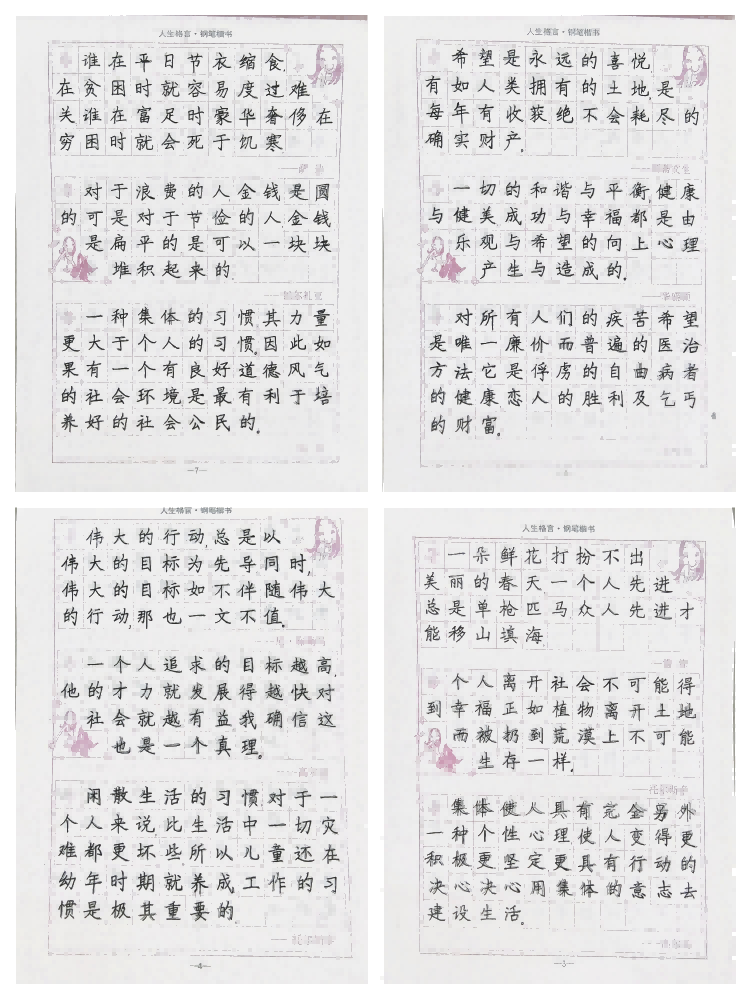 人生格言·钢笔楷书
谁在平日节衣缩食,
在贫困时就容易度过难
关谁在富足时豪华奢侈在
穷困时就会死于饥寒
对于浪费的人金钱是圆
的可是对于节俭的人金钱
是扁平的是可以一块块
堆积起来的
一种集体的习惯其力量
更大于个人的习惯因此如
果有一个有良好道德风气
的社会环境是最有利于培
养好的社会公民的。
—7—
人生格言·钢笔楷书
希望是永远的喜悦,
有如人类拥有的土地,是
每年有收获绝不会耗尽的
确实财产。
一切的和谐与平衡,健康
与健美成功与幸福都是由
乐观与希望的向上心理
产生与造成的。
对所有人们的疾苦希望
是唯一廉价而普遍的医治
方法它是俘虏的自由病者
的健康恋人的胜利及乞丐
的财富。
人生格言·钢笔楷书
伟大的行动,总是以
伟大的目标为先导同时,
伟大的目标如不伴随伟大
的行动,那也一文不值。
一个人追求的目标越高,
他的才力就发展得越快对
社会就越有益我确信这
也是一个真理。
闲散生活的习惯对于一
个人来说比生活中一切灾
难都更坏些所以儿童还在
幼年时期就养成工作的习
惯是极其重要的
—4—
人生格言·钢笔楷书
一朵鲜花打扮不出
美丽的春天一个人先进
总是单枪匹马众人先进才
能移山填海
个人离开社会不可能得
到幸福正如植物离开土地
而被扔到荒漠上不可能
生存一样。
集体使人具有完全另外
一种个性心理使人变得更
积极更坚定更具有行动的
决心决心用集体的意志去
建设生活。
—3—